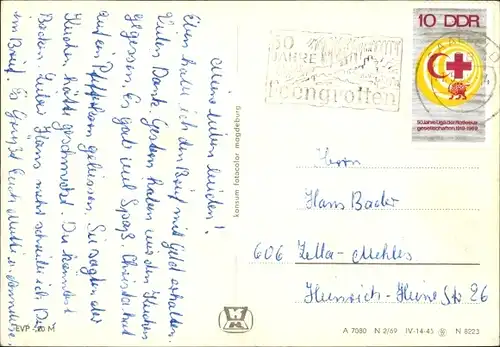 Meine lieben beiden!
Eben habe ich den Brief mit Geld erhalten.
Vielen Dank. Gestern haben wir den Kuchen
gegessen. Es gab viel Spaß. Christa hat
auf den gebissen. Sie sagten der
Kuchen hätte geschmeckt. Du kannst
Backen. Lieber Hans mehr schreibe ich Dir
im Brief. Es Grüßt Euch Mutti u.
EVP -,20 M
konsum fotocolor magdeburg
50
JAHRE
Feengrotten
10 DDR
50 Jahre Liga der Rotkreuz-
gesellschaften 1919-1969
Herrn
Hans Bader
606 Zella-Mehlis
Heinrich-Heine Str 26
A 7080 N 2/69 IV-14-45 N 8223